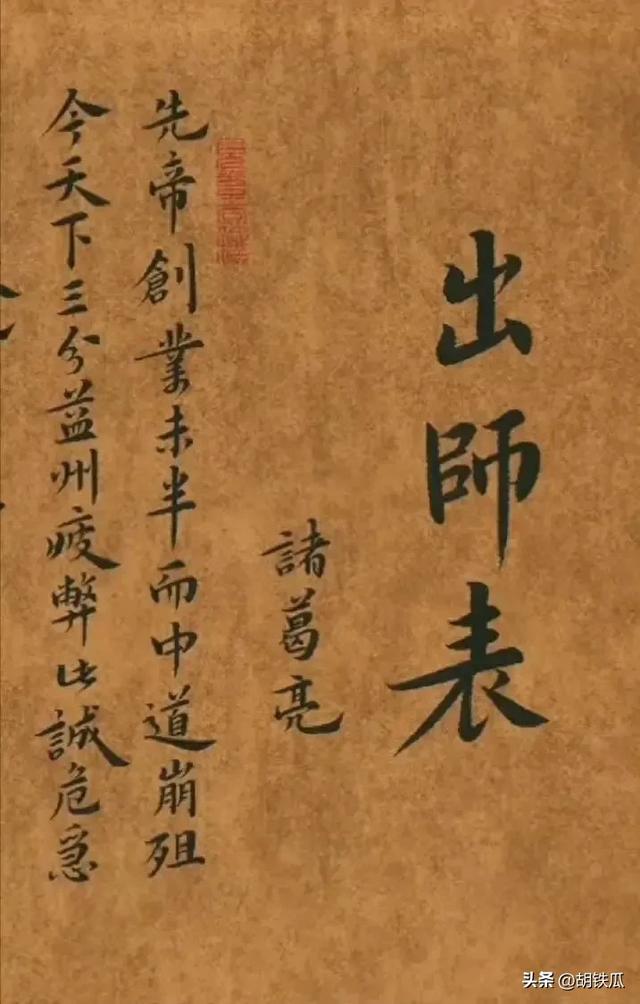 出師表
諸葛亮
先帝創業未半而中道崩殂
今天下三分益州疲弊此誠危急
头条 @胡铁瓜